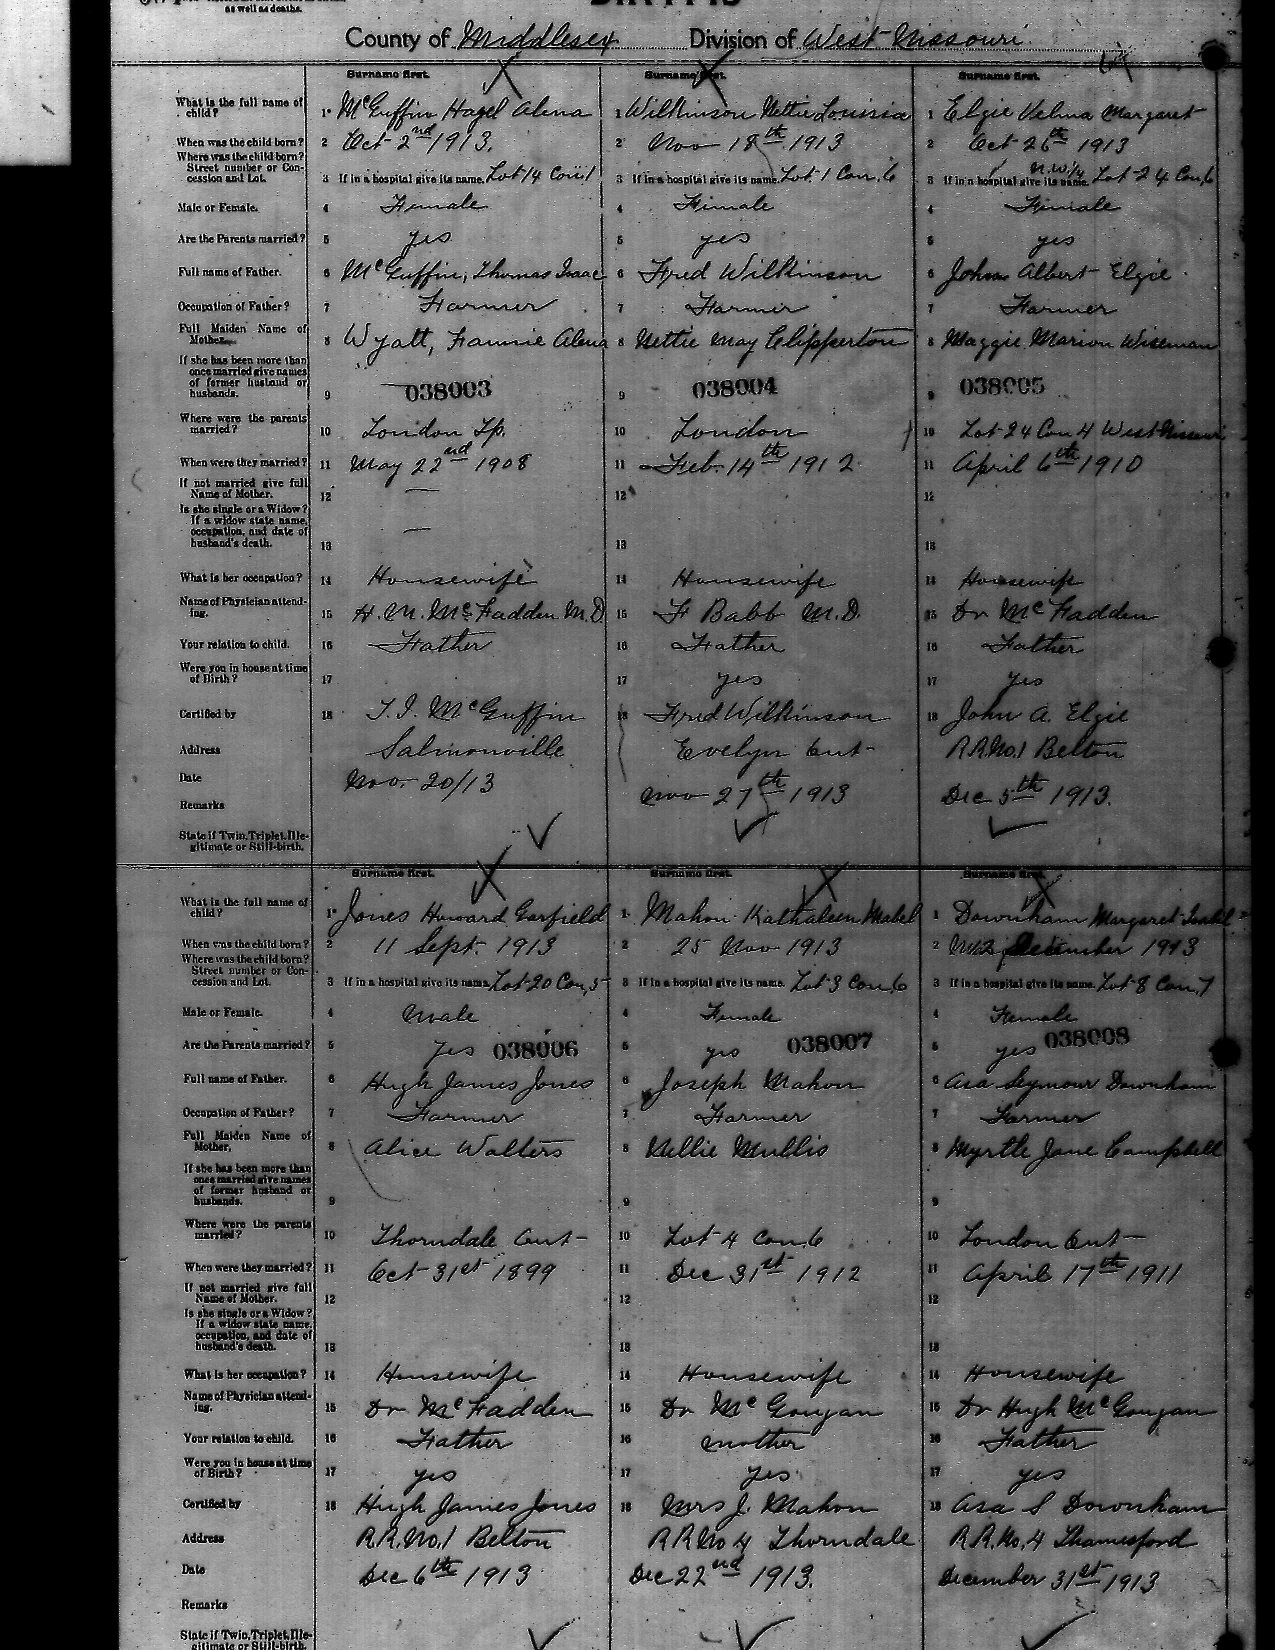 as well as deaths.
BIRTHS
County of Middlesex Division of West Missouri
Surname first. Surname first. Surname first.
What is the full name of child? 1 McGuffin Hazel Alena 1 Wilkinson Nettie Louisia 1 Elgie Velma Margaret
When was the child born? 2 Oct 2nd 1913. 2 Nov 18th 1913 2 Oct 26th 1913
Where was the child born? Street number or Concession and Lot. 3 If in a hospital give its name. Lot 14 Con 1 3 If in a hospital give its name. Lot 1 Con. 6 3 If in a hospital give its name. N.W.1/4 Lot 24 Con 6
Male or Female. 4 Female 4 Female 4 Female
Are the Parents married? 5 yes 5 yes 5 yes
Full name of Father. 6 McGuffin, Thomas Isaac 6 Fred Wilkinson 6 John Albert Elgie
Occupation of Father? 7 Farmer 7 Farmer 7 Farmer
Full Maiden Name of Mother. 8 Wyatt, Fannie Alena 8 Nettie May Clipperton 8 Maggie Marion Wiseman
If she has been more than once married give names of former husband or husbands. 9 038003 9 038004 9 038005
Where were the parents married? 10 London Tp. 10 London 10 Lot 24 Con 4 West Missouri
When were they married? 11 May 22nd 1908 11 Feb. 14th 1912 11 April 6th 1910
If not married give full Name of Mother. 12 — 12 12
Is she single or a Widow? If a widow state name, occupation, and date of husband's death. 13 — 13 13
What is her occupation? 14 Housewife 14 Housewife 14 Housewife
Name of Physician attending. 15 H. M. McFadden M.D 15 F Babb M.D. 15 Dr McFadden
Your relation to child. 16 Father 16 Father 16 Father
Were you in house at time of Birth? 17 17 yes 17 yes
Certified by 18 T. I. McGuffin 18 Fred Wilkinson 18 John A. Elgie
Address Salmonville Evelyn Ont R.R.No.1 Belton
Date Nov. 20/13 Nov 27th 1913 Dec 5th 1913.
Remarks
State if Twin, Triplet, Illegitimate or Still-birth.
Surname first. Surname first. Surname first.
What is the full name of child? 1 Jones Howard Garfield 1 Mahon Kathaleen Mabel 1 Downham Margaret Isabel
When was the child born? 2 11 Sept. 1913 2 25 Nov 1913 2 December 1913
Where was the child born? Street number or Concession and Lot. 3 If in a hospital give its name. Lot 20 Con, 5 3 If in a hospital give its name. Lot 3 Con, 6 3 If in a hospital give its name. Lot 8 Con, 7
Male or Female. 4 Male 4 Female 4 Female
Are the Parents married? 5 Yes 038006 5 yes 038007 5 yes 038008
Full name of Father. 6 Hugh James Jones 6 Joseph Mahon 6 Asa Seymour Downham
Occupation of Father? 7 Farmer 7 Farmer 7 Farmer
Full Maiden Name of Mother, 8 Alice Walters 8 Nellie Mullis 8 Myrtle Jane Campbell
If she has been more than once married give names of former husband or husbands. 9 9 9
Where were the parents married? 10 Thorndale Ont 10 Lot 4 Con. 6 10 London Ont
When were they married? 11 Oct 31st 1899 11 Dec 31st 1912 11 April 17th 1911
If not married give full Name of Mother. 12 12 12
Is she single or a Widow? If a widow state name, occupation, and date of husband's death. 13 13 13
What is her occupation? 14 Housewife 14 Housewife 14 Housewife
Name of Physician attending. 15 Dr McFadden 15 Dr McGougan 15 Dr Hugh McGougan
Your relation to child. 16 Father 16 mother 16 Father
Were you in house at time of Birth? 17 yes 17 yes 17 yes
Certified by 18 Hugh James Jones 18 Mrs J. Mahon 18 Asa S Downham
Address R.R.No,1 Belton R R No 4 Thorndale R.R.No,4 Thamesford
Date Dec 6th 1913 Dec 22nd 1913. December 31st 1913
Remarks
State if Twin, Triplet, Illegitimate or Still-birth.